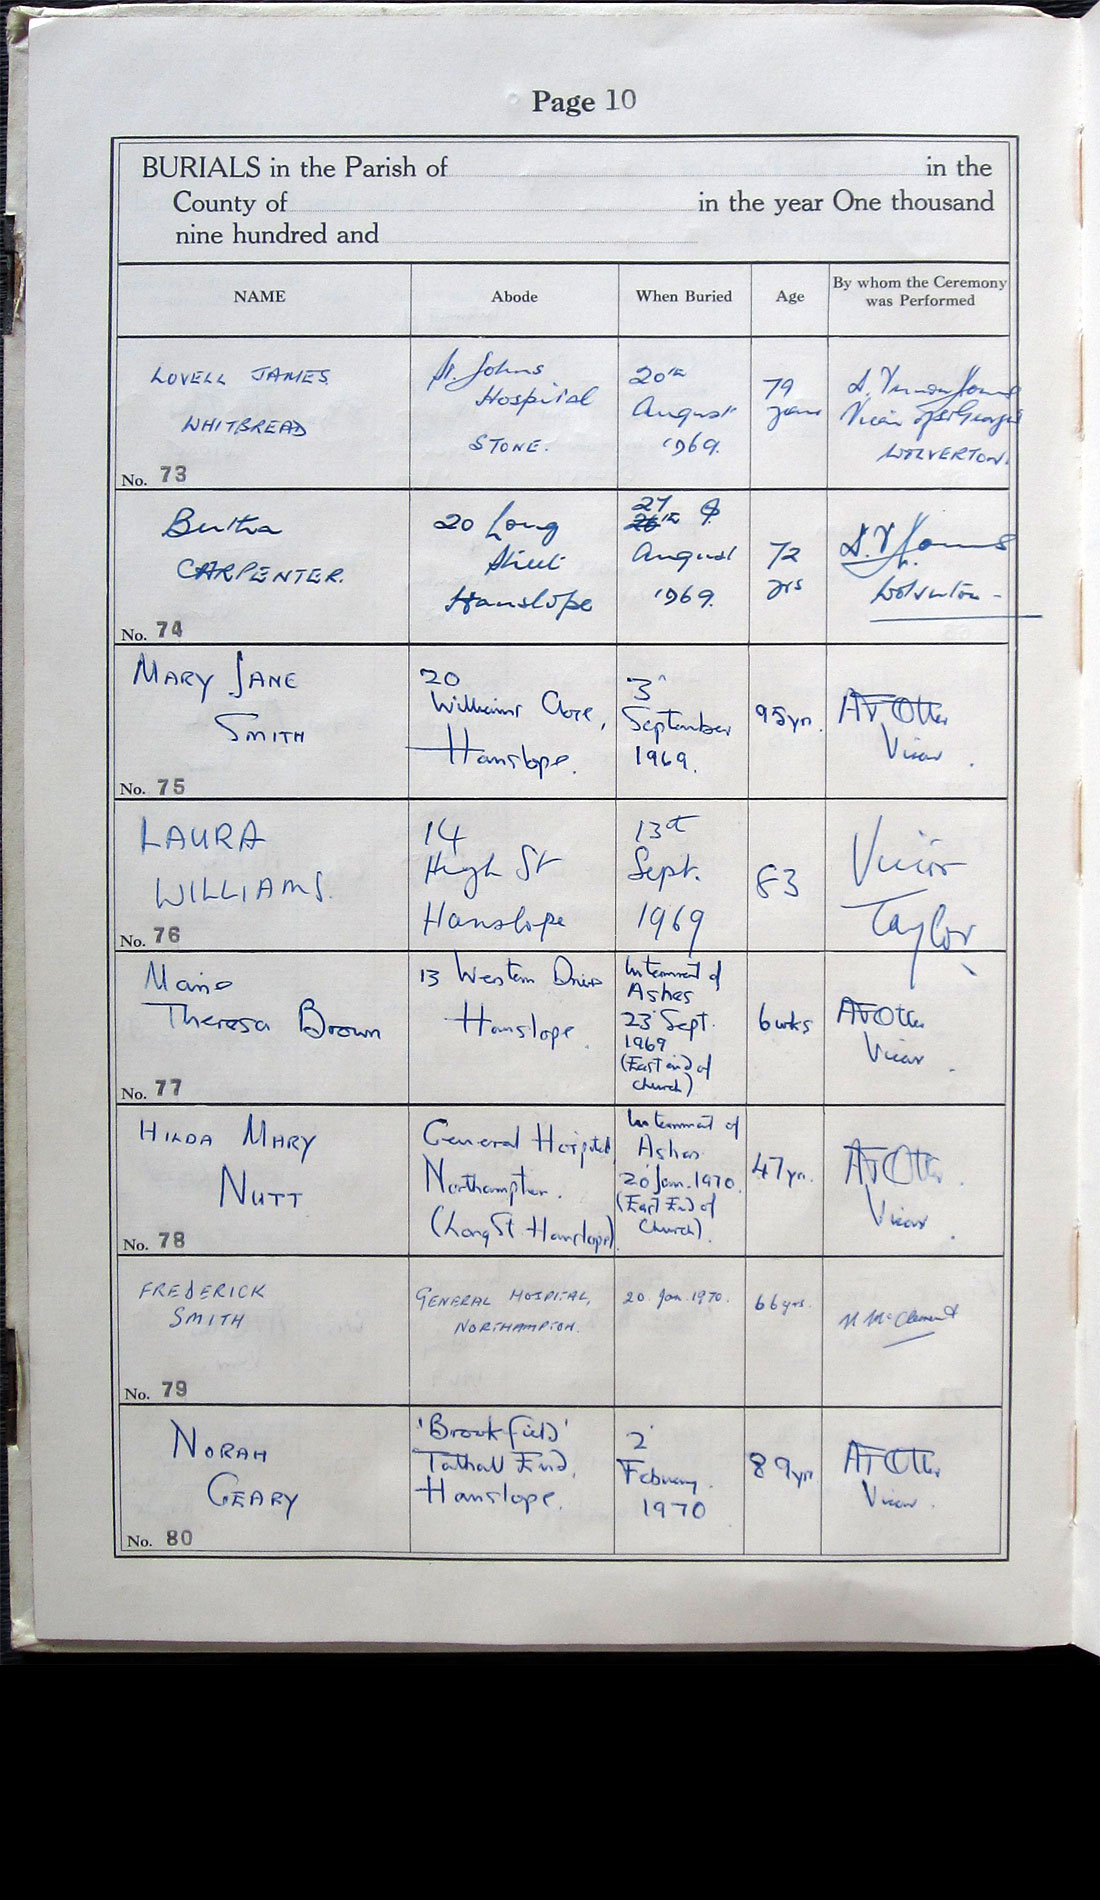 Page 10
BURIALS in the Parish of in the
County of in the year One thousand
nine hundred and
NAME Abode When Buried Age By whom the Ceremony was Performed
LOVELL JAMES
WHITBREAD
No. 73
St. Johns
Hospital
STONE.
20th
August
1969.
79
years
Vicar of St Georges
WOLVERTON.
Bertha
CARPENTER.
No. 74
20 Long
Street
Hanslope
27
26th
August
1969.
72
yrs
Wolverton -
MARY JANE
SMITH
No. 75
20
Williams Close,
Hanslope.
3
September
1969.
95 yrs.
Vicar.
LAURA
WILLIAMS.
No. 76
14
High St
Hanslope
13th
Sept.
1969
83
Victor
Taylor
Theresa Brown
No. 77
13 Western Drive
Hanslope.
Internment of
Ashes
23 Sept.
1969
(East end of
church)
6 wks
Vicar.
HILDA MARY
NUTT
No. 78
General Hospital
Northampton.
(Long St Hanslope)
Internment of
Ashes
20 Jan. 1970.
(East End of
Church).
47 yrs.
Vicar.
FREDERICK
SMITH
No. 79
GENERAL HOSPITAL,
NORTHAMPTON.
20. Jan. 1970.
66 yrs.
McClement
NORAH
GEARY
No. 80
'Brookfield'
Tathall End,
Hanslope.
2
February.
1970
89 yrs
Vicar.